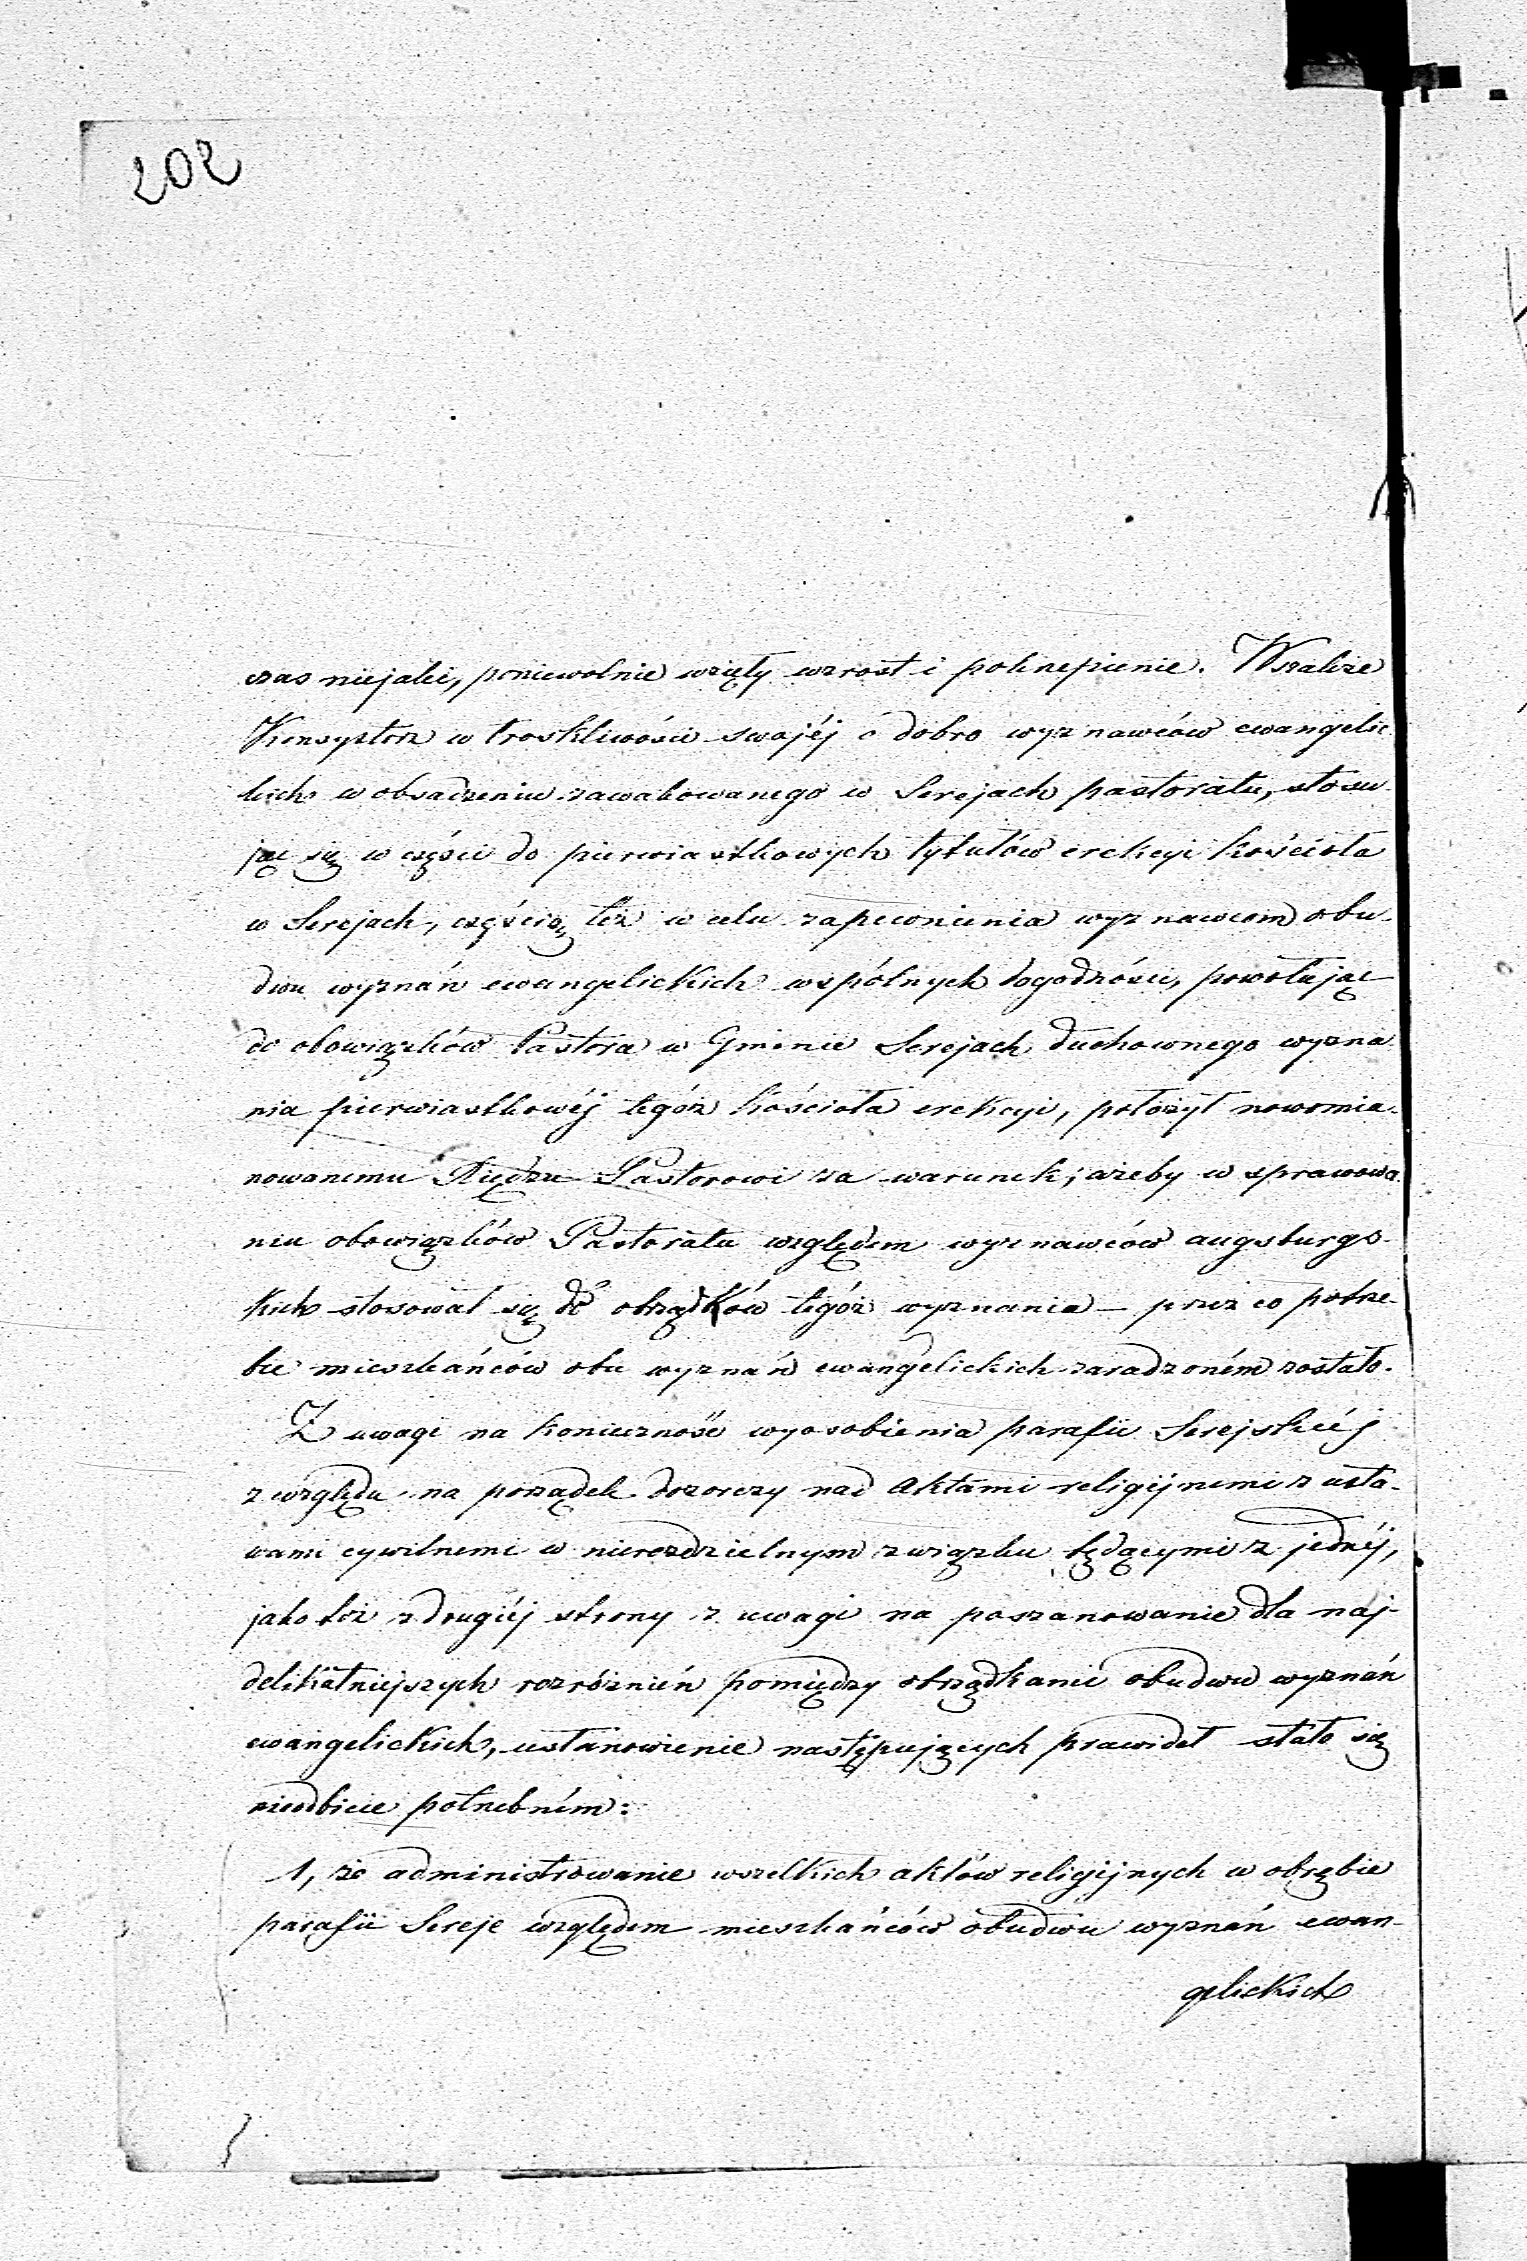 202
czas niejaki, poniewolnie wzięły wzrost i pokrzepienie. Wszakże
Konsystorz w troskliwości swojéj o dobro wyznawców ewangelic
kich w obsadzeniu zawakowanego w Serejach pastoratu, stosu
jąc się w części do pierwiastkowych tytułów erekcyi kościoła
w Serejach, częścią też w celu zapewnienia wyznawcom obu-
dwu wyznań ewangelickich wspólnych dogodności, powołując
do obowiązków Pastora w Gminie Serejach duchownego wyzna
nia pierwiastkowéj tegóż kościoła erekcyi, położył nowomia-
nowanemu Księdzu Pastorowi za warunek, ażeby w sprawowa
niu obowiązków Pastoratu względem wyznawców augsburgs-
kich stosował się do obrządków tegóż wyznania – przez co potrze-
bie mieszkańców obu wyznań ewangelickich zaradzoném zostało.
Z uwagi na konieczność wyosobienia parafii Serejskiéj
z względu na porządek dozorczy nad Aktami religijnemi z usta-
wami cywilnemi w nierozdzielnym związku będącymi z jednéj,
jako też z drugiéj strony z uwagi na poszanowanie dla naj-
delikatniejszych rozróżnień pomiędzy obrządkami obudwu wyznań
ewangelickich, ustanowienie następujących prawideł stało się
nieodbicie potrzebném:
1, że administrowanie wszelkich aktów religijnych w obrębie
parafii Sereje względem mieszkańców obudwu wyznań ewan-
gelickich